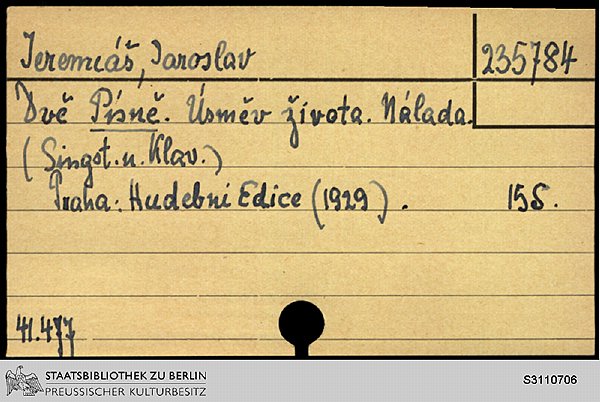 Jeremiáš, Jaroslav
235784
Dvě Písně. Úsměv života. Nálada.
(Singst. u. Klav.)
Praha: Hudebni Edice (1929). 15 S.
41.477
STAATSBIBLIOTHEK ZU BERLIN
PREUSSISCHER KULTURBESITZ
S3110706